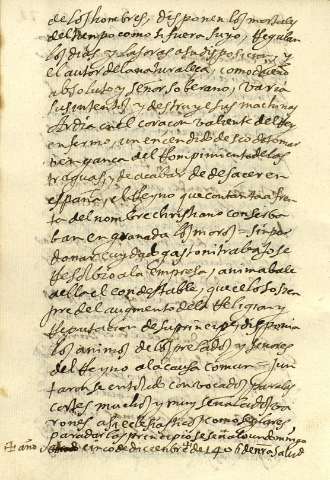 de los hombres, disponen los mortales
del tiempo como si fuera suyo, Regulan
los dias y las oras a su disposicion, y
el autor de la naturaleça, como dueño
absoluto y señor soberano, Varia
sus intentos, y destruye sus machinas
Ardia en el coraçon valiente del Rey
enfermo, un encendido deseo de tomar
vengança del Rompimiento de las
treguas, y de acabar de desacer en
españa, el Reyno que con tanta afren
ta del nombre christiano conserba
ban en granada los moros - sin per
donar cuydado gasto ni trabajo se
Resolbio a la empresa, animabale
a ello el condestable, que celoso siem
pre del augmento de la Religion y
Reputacion de su principe, disponia
los animos de los prelados, y señores
del Reyno a la causa comun - jun
taron se en toledo convocados para las
cortes muchos y muy señalados ba
rones asi eclesiasticos como seglares,
para dar las principio se señalo un domingo
+ año cinco de diciembre de 1406 dentro salud